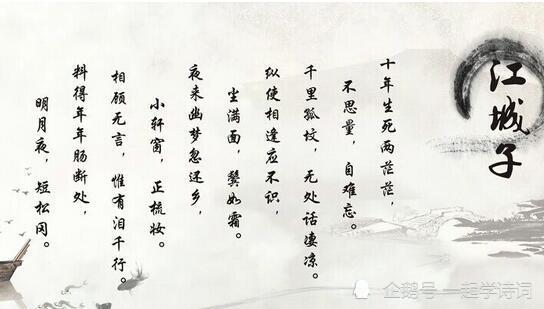 江城子
十年生死两茫茫，
不思量，自难忘。
千里孤坟，无处话凄凉。
纵使相逢应不识，
尘满面，鬓如霜。
夜来幽梦忽还乡，
小轩窗，正梳妆。
相顾无言，惟有泪千行。
料得年年肠断处，
明月夜，短松冈。
企鹅号 一起学诗词